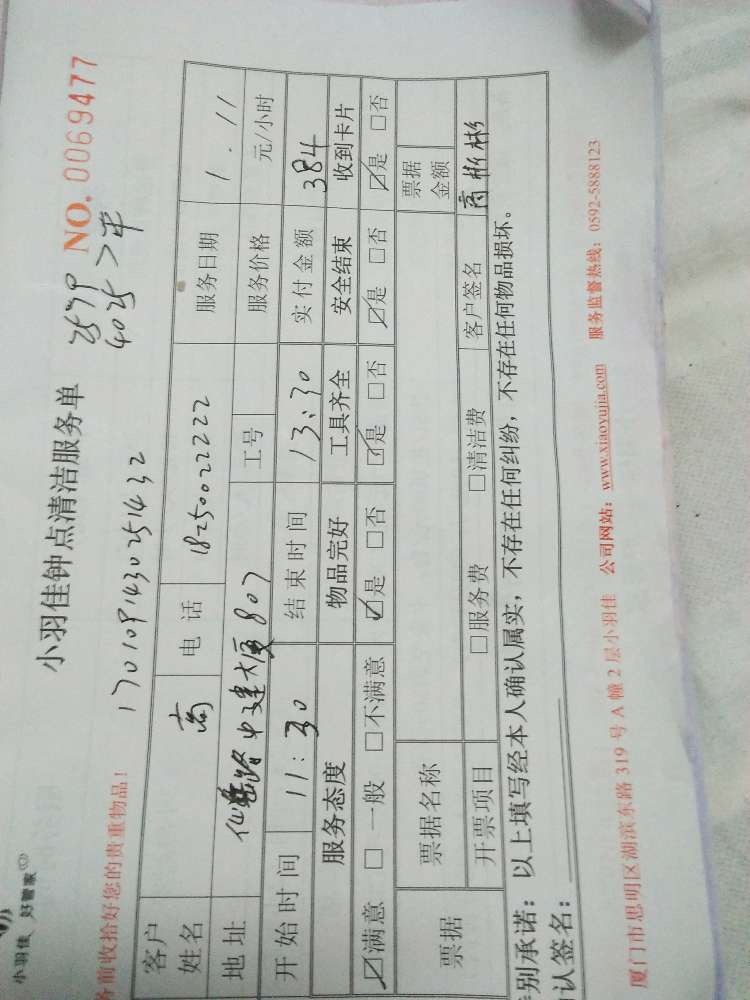 小羽佳 好管家
小羽佳钟点清洁服务单 NO. 0069477
1701091430251432
务前收拾好您的贵重物品！
客户姓名 电话 18250022222 服务日期 1.11
地址 807 工号 服务价格 元/小时
开始时间 11:30 结束时间 13:30 实付金额 384
服务态度 物品完好 工具齐全 安全结束 收到卡片
☑满意 □一般 □不满意 ☑是 □否 ☑是 □否 ☑是 □否 ☑是 □否
票据 票据名称 票据金额
开票项目 □服务费 □清洁费 客户签名
别承诺：以上填写经本人确认属实，不存在任何纠纷，不存在任何物品损坏。
认签名：
厦门市思明区湖滨东路 319 号 A 幢 2 层小羽佳 公司网站：www.xiaoyujia.com 服务监督热线：0592-5888123